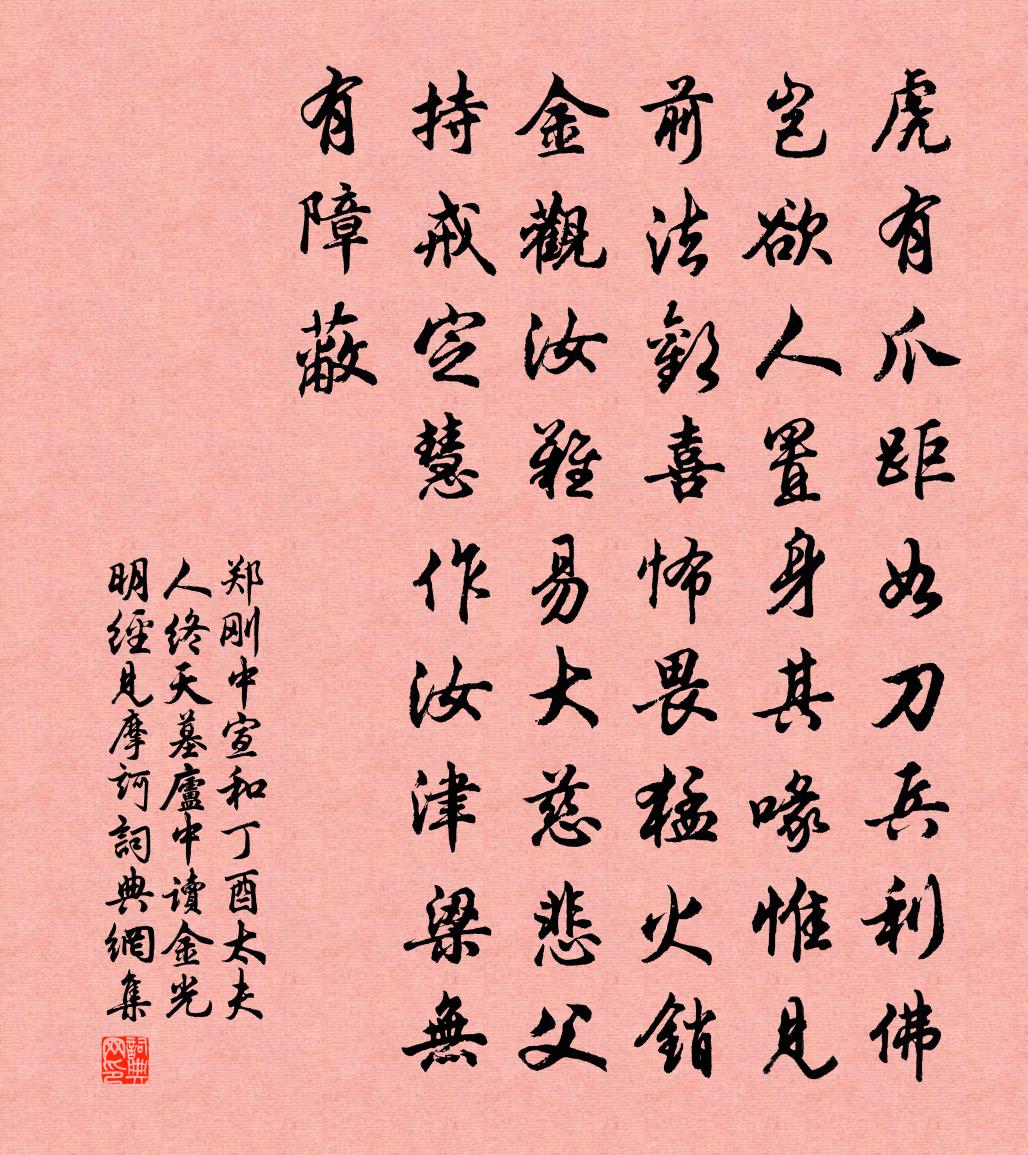 虎有爪距如刀兵利佛
岂欲人置身其喙惟見
前法歡喜怖畏猛火銷
金觀汝難易大慈悲父
持戒定慧作汝津梁無
有障蔽
郑刚中宣和丁酉太夫
人终天墓廬中读金光
明經見摩訶詞典網集
詞典网印